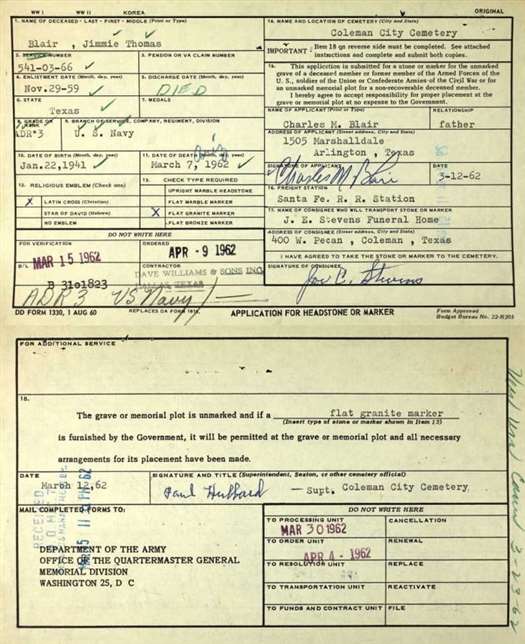 WW I WW II KOREA ORIGINAL
1. NAME OF DECEASED - LAST - FIRST - MIDDLE (Print or Type)
Blair, Jimmie Thomas
2. SERVICE NUMBER
541-03-66
3. PENSION OR VA CLAIM NUMBER
4. ENLISTMENT DATE (Month, day, year)
Nov.29-59
5. DISCHARGE DATE (Month, day, year)
DIED
6. STATE
Texas
7. MEDALS
8. GRADE OR
ADR*3
9. BRANCH OF SERVICE, COMPANY, REGIMENT, DIVISION
U. S. Navy
10. DATE OF BIRTH (Month, day, year)
Jan.22,1941
11. DATE OF DEATH (Month, day, year)
March 7, 1962
12. RELIGIOUS EMBLEM (Check one)
X LATIN CROSS (Christian)
STAR OF DAVID (Hebrew)
NO EMBLEM
13. CHECK TYPE REQUIRED
UPRIGHT MARBLE HEADSTONE
FLAT MARBLE MARKER
X FLAT GRANITE MARKER
FLAT BRONZE MARKER
DO NOT WRITE HERE
FOR VERIFICATION
MAR 15 1962
ORDERED
APR - 9 1962
B/L
B 3101823
CONTRACTOR
DAVE WILLIAMS & SONS INC
DALLAS TEXAS
ADR 3 US Navy
14. NAME AND LOCATION OF CEMETERY (City and State)
Coleman City Cemetery
IMPORTANT: Item 18 on reverse side must be completed. See attached instructions and complete and submit both copies.
15. This application is submitted for a stone or marker for the unmarked grave of a deceased member or former member of the Armed Forces of the U. S., soldier of the Union or Confederate Armies of the Civil War or for an unmarked memorial plot for a non-recoverable deceased member.
I hereby agree to accept responsibility for proper placement at the grave or memorial plot at no expense to the Government.
NAME OF APPLICANT (Print or Type)
Charles M. Blair
RELATIONSHIP
father
ADDRESS OF APPLICANT (Street address, City and State)
1505 Marshalldale
Arlington, Texas
SIGNATURE OF APPLICANT
Charles M Blair
DATE
3-12-62
16. FREIGHT STATION
Santa Fe. R. R. Station
17. NAME OF CONSIGNEE WHO WILL TRANSPORT STONE OR MARKER
J. E. Stevens Funeral Home
ADDRESS OF CONSIGNEE (Street address, City and State)
400 W. Pecan, Coleman, Texas
I HAVE AGREED TO TAKE THE STONE OR MARKER TO THE CEMETERY.
SIGNATURE OF CONSIGNEE
Joe E. Stevens
DD FORM 1330, 1 AUG 60
REPLACES DA FORM
APPLICATION FOR HEADSTONE OR MARKER
Form Approved
Budget Bureau No. 22-R203
FOR ADDITIONAL SERVICE
18.
The grave or memorial plot is unmarked and if a flat granite marker
(Insert type of stone or marker shown in Item 13)
is furnished by the Government, it will be permitted at the grave or memorial plot and all necessary
arrangements for its placement have been made.
DATE
March 12,62
SIGNATURE AND TITLE (Superintendent, Sexton, or other cemetery official)
Paul Hubbard — Supt. Coleman City Cemetery
MAIL COMPLETED FORMS TO:
DEPARTMENT OF THE ARMY
OFFICE OF THE QUARTERMASTER GENERAL
MEMORIAL DIVISION
WASHINGTON 25, D C
RECEIVED
DO NOT WRITE HERE
TO PROCESSING UNIT
MAR 30 1962
CANCELLATION
TO ORDER UNIT
APR 4 - 1962
RENEWAL
TO RESOLUTION UNIT
REPLACE
TO TRANSPORTATION UNIT
REACTIVATE
TO FUNDS AND CONTRACT UNIT
FILE
3-23-62